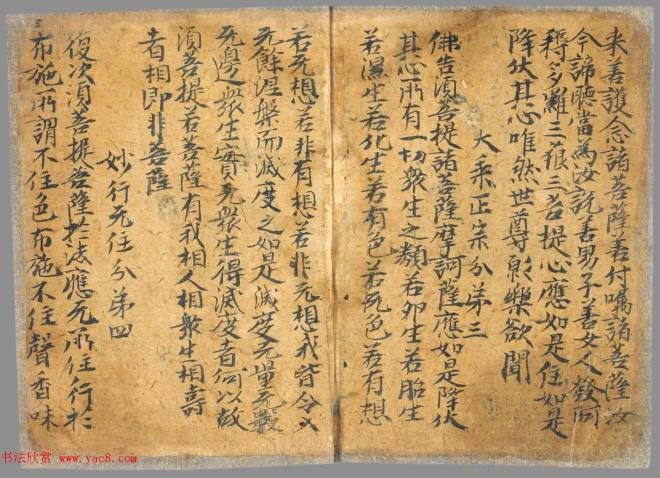 来善護念諸菩薩善付嘱諸菩薩汝
今諦聽當為汝説善男子善女人發阿
耨多羅三藐三菩提心應如是住如是
降伏其心唯然世尊願樂欲聞
大乘正宗分第三
佛告湏菩提諸菩薩摩訶薩應如是降伏
其心所有一切衆生之類若卵生若胎生
若濕生若化生若有色若无色若有想
若无想若非有想若非无想我皆令入
无餘涅槃而滅度之如是滅度无量无數
无邊衆生實无衆生得滅度者何以故
湏菩提若菩薩有我相人相衆生相壽
者相即非菩薩
妙行无住分第四
復次湏菩提菩薩於法應无所住行於
布施所謂不住色布施不住聲香味
书法欣赏 www.yac8.com